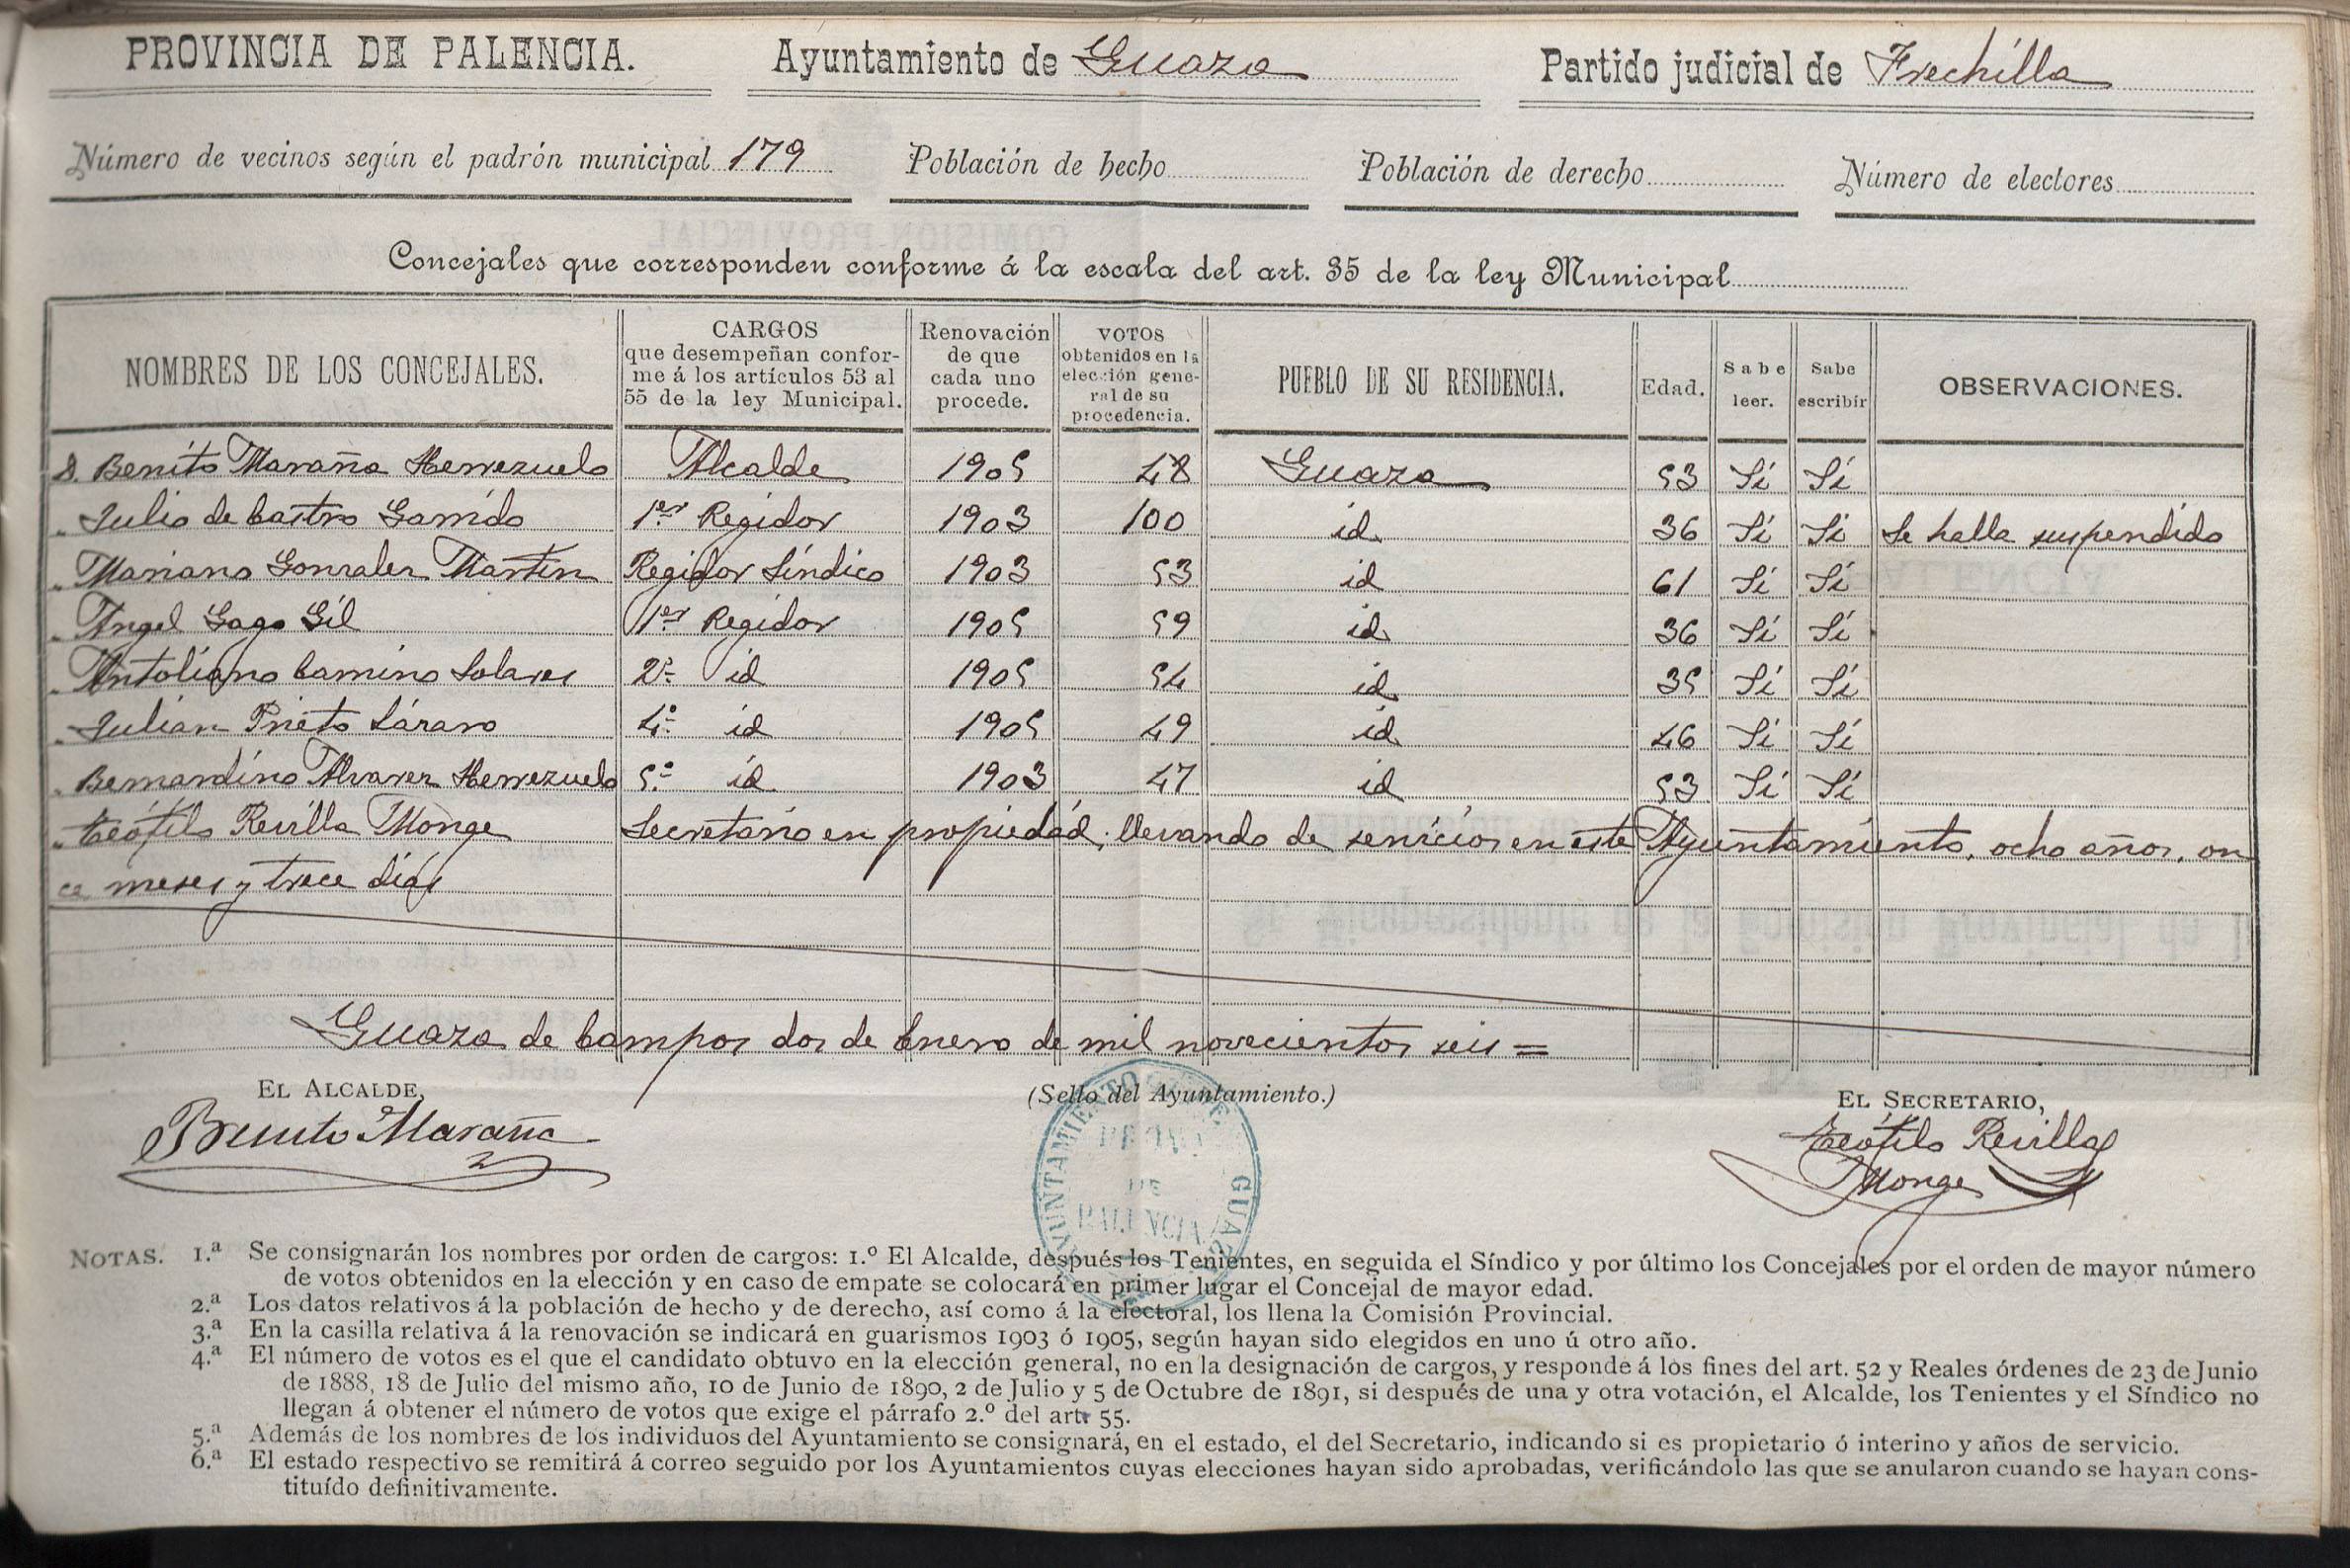 PROVINCIA DE PALENCIA. Ayuntamiento de Guaza Partido judicial de Frechilla
Número de vecinos según el padrón municipal 179 Población de hecho Población de derecho Número de electores
Concejales que corresponden conforme á la escala del art. 35 de la ley Municipal
NOMBRES DE LOS CONCEJALES.
CARGOS
que desempeñan confor-
me á los artículos 53 al
55 de la ley Municipal.
Renovación
de que
cada uno
procede.
VOTOS
obtenidos en la
elección gene-
ral de su
procedencia.
PUEBLO DE SU RESIDENCIA.
Edad.
Sabe
leer.
Sabe
escribir
OBSERVACIONES.
D. Benito Maraña Herrezuelo Alcalde 1905 48 Guaza 53 Sí Sí
" Julio de Castro Garrido 1er Regidor 1903 100 id 36 Sí Sí Se halla suspendido
" Mariano Gonzalez Martin Regidor Síndico 1903 53 id 61 Sí Sí
" Angel Gago Gil 1er Regidor 1905 59 id 36 Sí Sí
" Antoliano Camino Solares 2º id 1905 54 id 35 Sí Sí
" Julian Prieto Lázaro 4º id 1905 49 id 46 Sí Sí
" Bernardino Alvarez Herrezuelo 5º id 1903 47 id 53 Sí Sí
" Teófilo Revilla Monge Secretario en propiedad, llevando de servicios en este Ayuntamiento, ocho años, on
ce meses y trece días
Guaza de Campos dos de Enero de mil novecientos seis =
EL ALCALDE, (Sello del Ayuntamiento.) EL SECRETARIO,
Benito Maraña
Teófilo Revilla
Monge
AYUNTAMIENTO
DE
PALENCIA
GUAZA
NOTAS. 1.ª Se consignarán los nombres por orden de cargos: 1.º El Alcalde, después los Tenientes, en seguida el Síndico y por último los Concejales por el orden de mayor número
de votos obtenidos en la elección y en caso de empate se colocará en primer lugar el Concejal de mayor edad.
2.ª Los datos relativos á la población de hecho y de derecho, así como á la electoral, los llena la Comisión Provincial.
3.ª En la casilla relativa á la renovación se indicará en guarismos 1903 ó 1905, según hayan sido elegidos en uno ú otro año.
4.ª El número de votos es el que el candidato obtuvo en la elección general, no en la designación de cargos, y responde á los fines del art. 52 y Reales órdenes de 23 de Junio
de 1888, 18 de Julio del mismo año, 10 de Junio de 1890, 2 de Julio y 5 de Octubre de 1891, si después de una y otra votación, el Alcalde, los Tenientes y el Síndico no
llegan á obtener el número de votos que exige el párrafo 2.º del art. 55.
5.ª Además de los nombres de los individuos del Ayuntamiento se consignará, en el estado, el del Secretario, indicando si es propietario ó interino y años de servicio.
6.ª El estado respectivo se remitirá á correo seguido por los Ayuntamientos cuyas elecciones hayan sido aprobadas, verificándolo las que se anularon cuando se hayan cons-
tituído definitivamente.